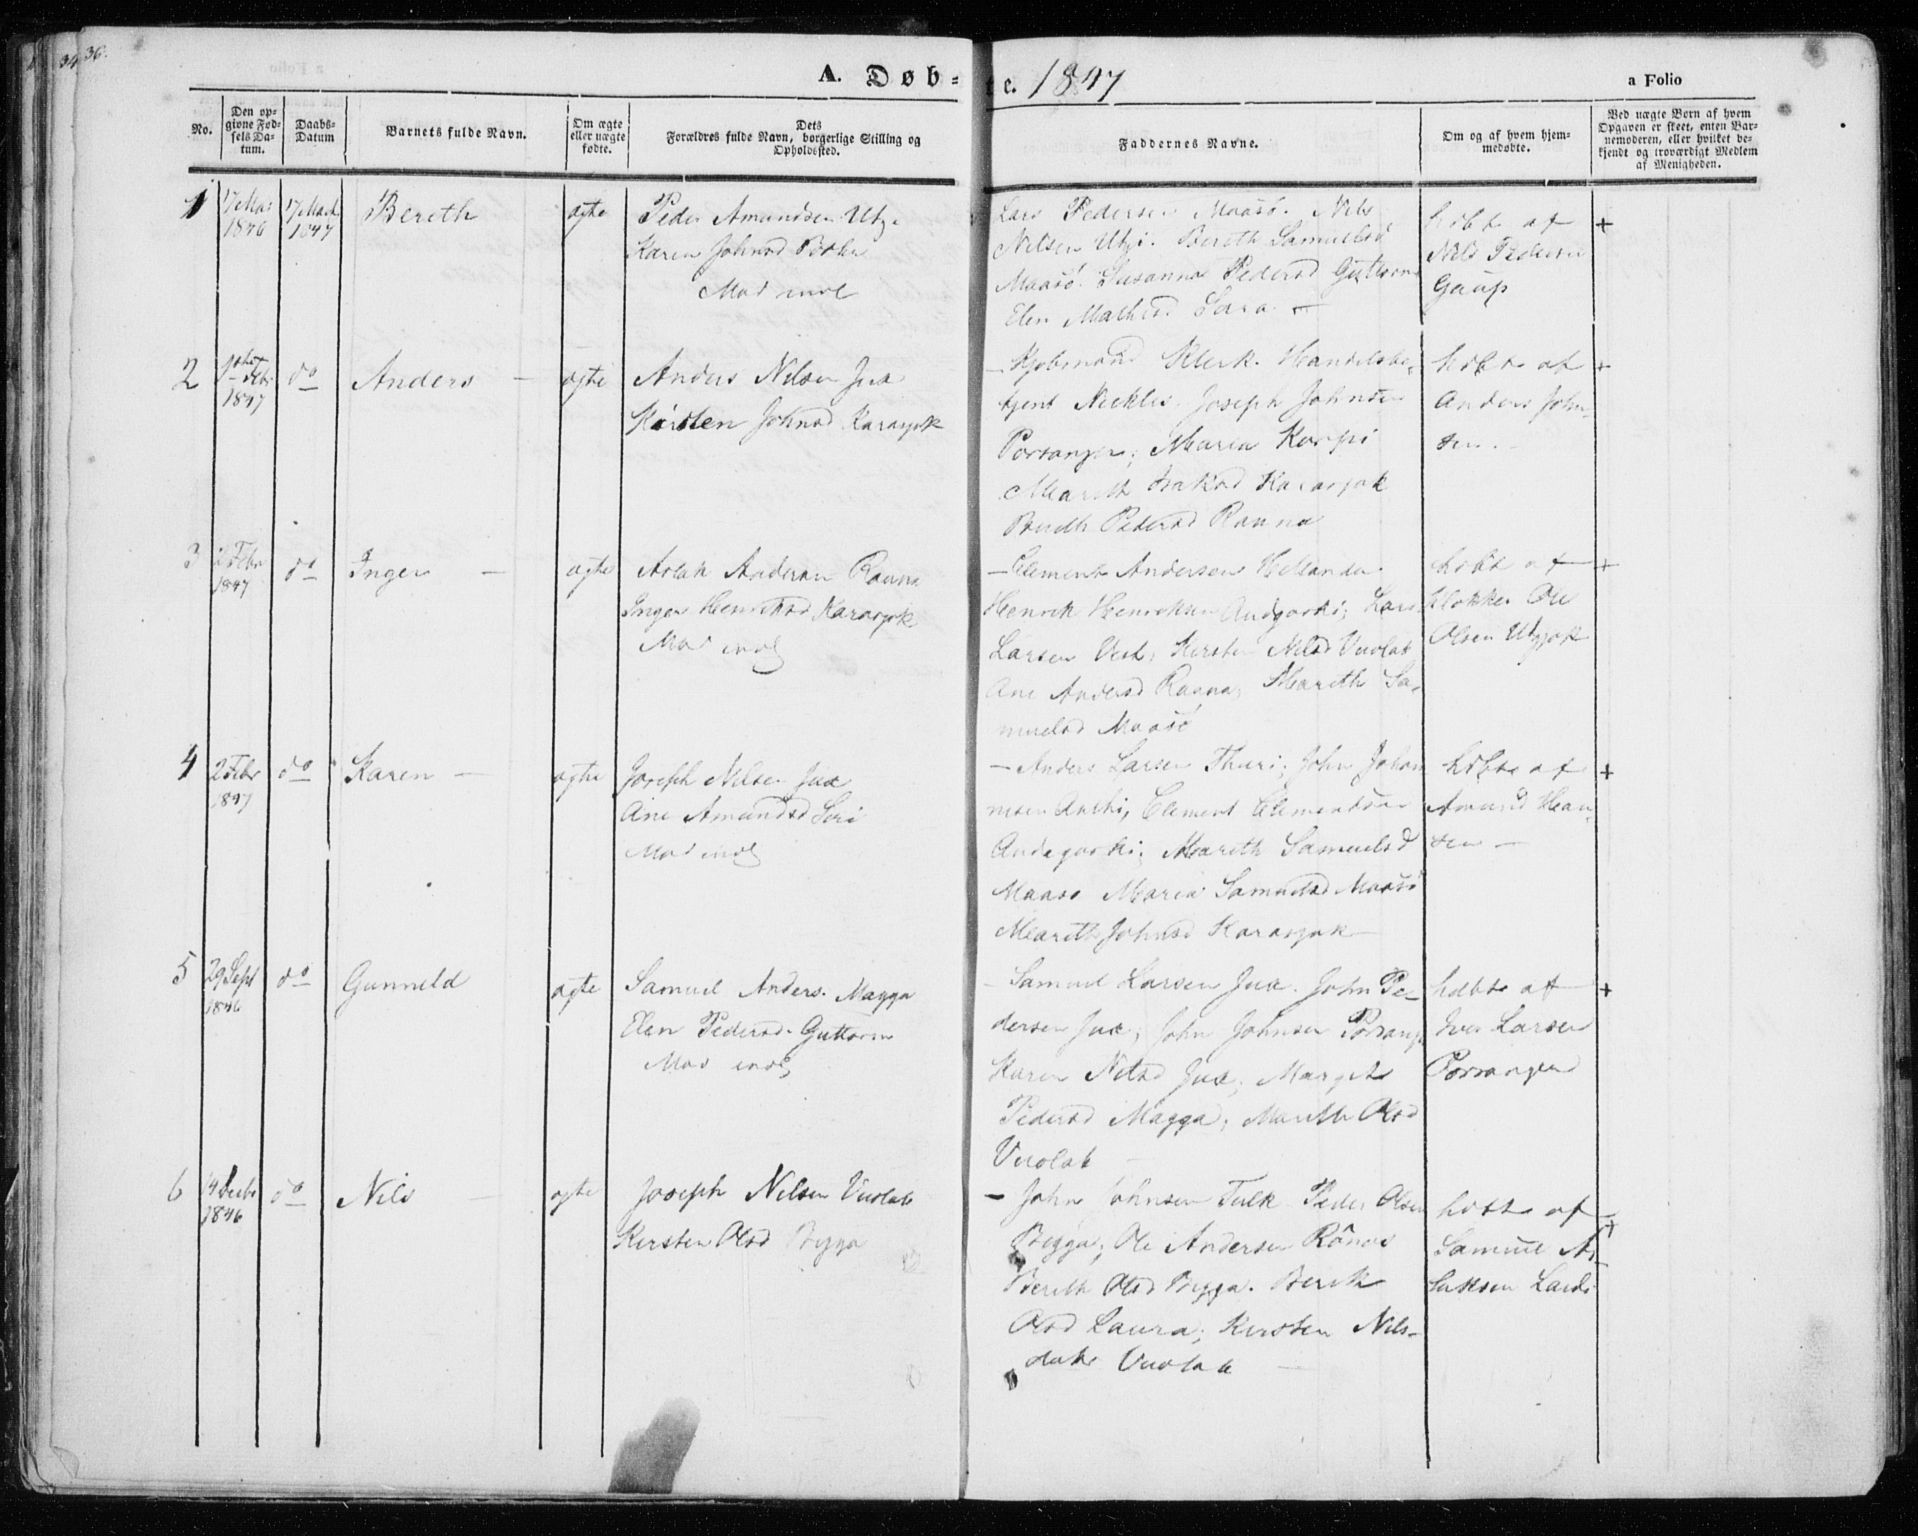 36.
A. Døb-te. 1847
a Folio
No.
Den op-
givne Fød-
sels Da-
tum.
Daabs-
Datum
Barnets fulde Navn.
Om ægte
eller uægte
fødte.
Dets
Forældres fulde Navn, borgerlige Stilling og
Opholdssted.
Faddernes Navne.
Om og af hvem hjem-
medøbte.
Ved uægte Børn af hvem
Opgaven er skeet, enten Bar-
nemoderen, eller hvilket be-
kjendt og troværdigt Medlem
af Menigheden.
1
1846
1847
Bereth
ægte
Peder Amundsen Utzi
Karen Johnsd
Mad indl
Lars Pedersen Maasø. Nils
Nilsen Utzi. Bereth Samuelsd
Maasø. Susanna Pedersd Guttorm
Elen Mathisd Sara
hdbt af
Nils Pedersen
Gaup
+
2
Febr
1847
do
Anders
ægte
Anders Nilsen Jux
Kirsten Johnsd Karasjok
Kjøbmand Klerk. Handelsbe-
tjent Joseph Johnsen
Porsanger; Maria Karpi
Mareth Isaksd Karasjok
Pedersd Rauna
hdbt af
Anders John-
sen.
+
3
2 Febr
1847
do
Inger
ægte
Aslak Andersen Rauna
Inger Henriksd Karasjok
Mad indl
Clement Andersen Hellander
Henrik Henriksen Andgaski; Lars
Larsen Vest; Kirsten Nilsd Vuolab
Ane Andersd Rauna; Mareth Sa-
muelsd Maasø
hdbt af
klokker Ole
Olsen Utsjok
+
4
2 Febr
1847
do
Karen
ægte
Joseph Nilsen Jux
Ane Amundsd Siri
Mad indl
Anders Larsen Thuri; John Johan-
nesen Anthi; Clement Clementsen
Andagaski; Mareth Samuelsd
Maaso Maria Samuelsd Maasø
Mareth Johnsd Karasjok
hdbt af
Amund Han-
sen
+
5
29 Sept
1846
do
Gunnild
ægte
Samuel Anders. Magga
Elen Pedersd. Guttorm
Mad indl,
Samuel Larsen Jux. John Pe-
dersen Jux; John Johnsen Porsang
Karen Nilsd Jux; Margit
Pedersd Magga; Mareth Olsd
Vuolab
hdbt af
Iver Larsen
Porsanger
+
6
14 Decbr
1846
do
Nils
ægte
Joseph Nilsen Vuolab
Kirsten Olsd Bigga
John Johnsen Tulk Peder Olsen
Bigga; Ole Andersen Rånas
Bereth Olsd Bigga. Berit
Olsd Laura; Kirsten Nils-
datr Vuolab
hdbt af
Samuel As-
laksen Lardi
+